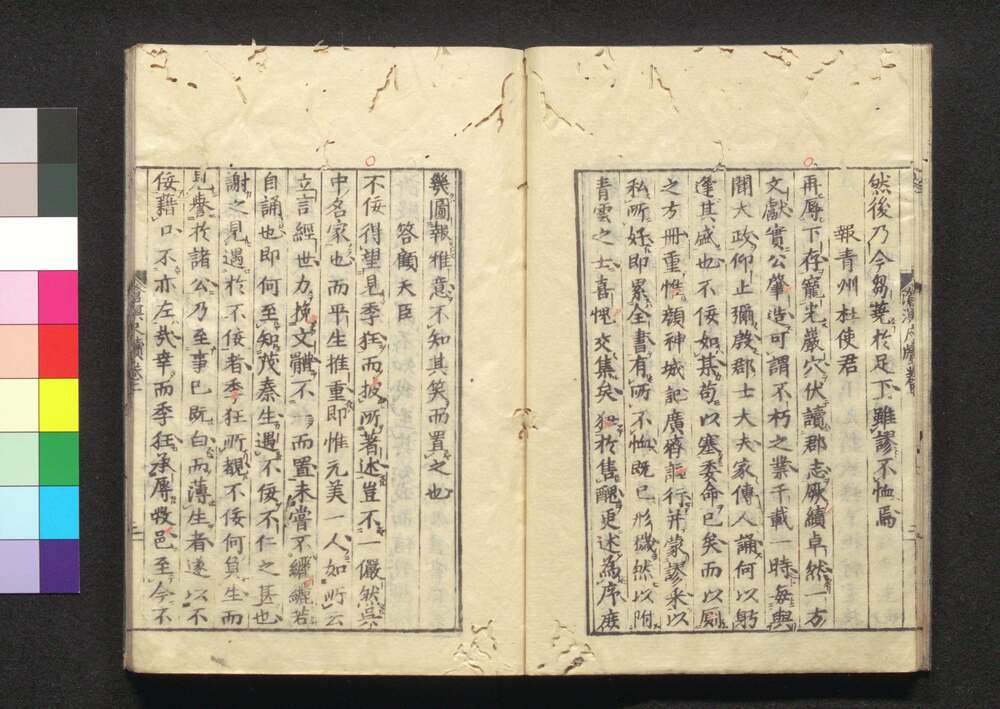 然後乃今芻蕘於足下雖謬不恤焉
報青州杜使君
再辱下存寵光巖穴伏讀郡志厥績卓然一方
文獻實公肇造可謂不朽之業千載一時每與
聞大政仰止彌殷郡士大夫家傳人誦何以躬
逢其盛也不佞如某苟以塞委命已矣而以厠
之方冊重惟顏神城記廣齊謳行并蒙謬采以
私所好即累全書有所不恤既已形穢然以附
青雲之士喜愧交集矣猶於售醜更述為序庶
幾圖報惟意不知其笑而置之也
答顧天臣
不佞得望見季狂而披所著述豈不一儼然吳
中名家也而平生推重即惟元美一人如所云
立言經世力挽文體不而置未嘗不纚纚若
自誦也即何至知茂秦生遇不佞不仁之甚也
謝之見遇於不佞者季狂所覩不佞何負生而
見譽於諸公乃至事已既白而薄生者遂以不
佞藉口不亦左哉幸而季狂承辱敝邑至今不